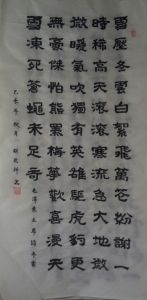 雪壓冬雲白絮飛萬花紛謝一
時稀高天滾滾寒流急大地微
微暖氣吹獨有英雄驅虎豹更
無豪傑怕熊羆梅花歡喜漫天
雪凍死蒼蠅未足奇
毛澤東主席詩冬雲